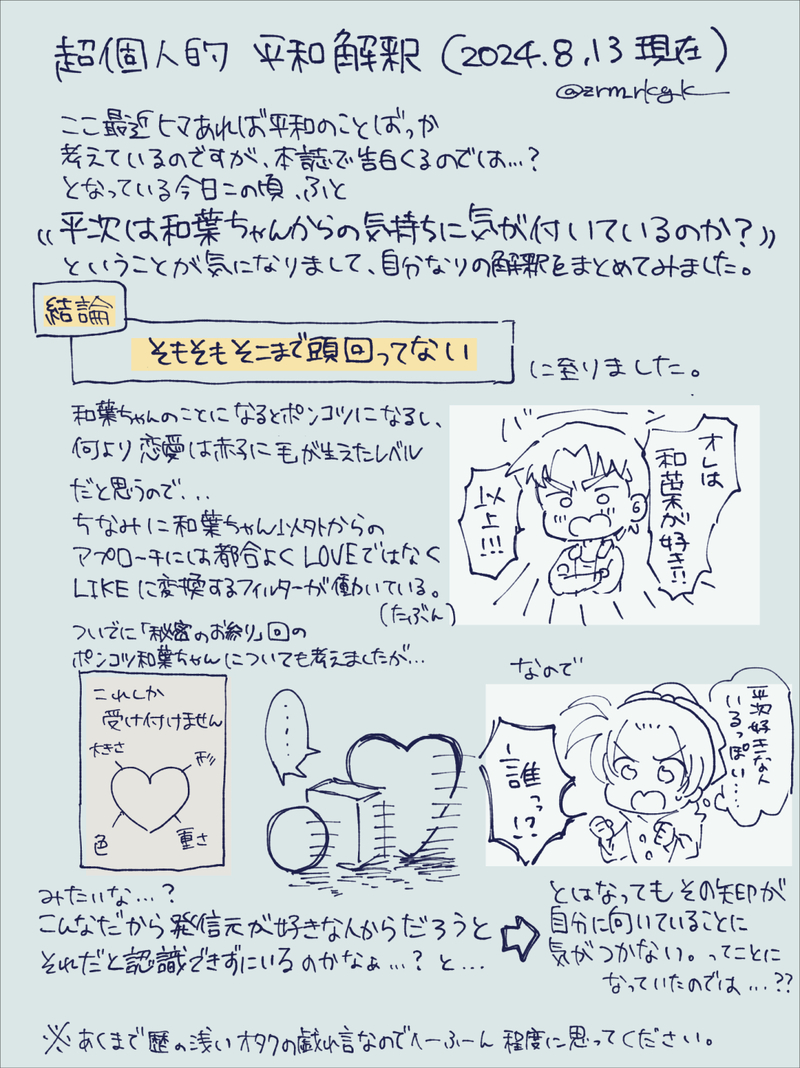 超個人的 平和解釈 (2024.8.13 現在)
@zrm_rkg_k
ここ最近ヒマあれば平和のことばっか
考えているのですが、本誌で告白くるのでは…?
となっている今日この頃、ふと
《平次は和葉ちゃんからの気持ちに気が付いているのか?》
ということが気になりまして、自分なりの解釈をまとめてみました。
結論
そもそもそこまで頭回ってない
に至りました。
和葉ちゃんのことになるとポンコツになるし、
何より恋愛は赤子に毛が生えたレベル
だと思うので...
ちなみに和葉ちゃん以外からの
アプローチには都合よくLOVEではなく
LIKEに変換するフィルターが働いている。
(たぶん)
オレは
和葉が好き!!
以上!!!
ついでに「秘密のお参り」回の
ポンコツ和葉ちゃんについても考えましたが…
これしか
受け付けません
大きさ
形
色
重さ
…
なので
平次好きな人
いるっぽい……
誰っ!?
みたいな…?
こんなだから発信元が好きな人からだろうと
それだと認識できずにいるのかなぁ…?と…
とはなってもその矢印が
自分に向いていることに
気がつかない。ってことに
なっていたのでは…??
※あくまで歴の浅いオタクの戯れ言なのでへーふーん程度に思ってください。